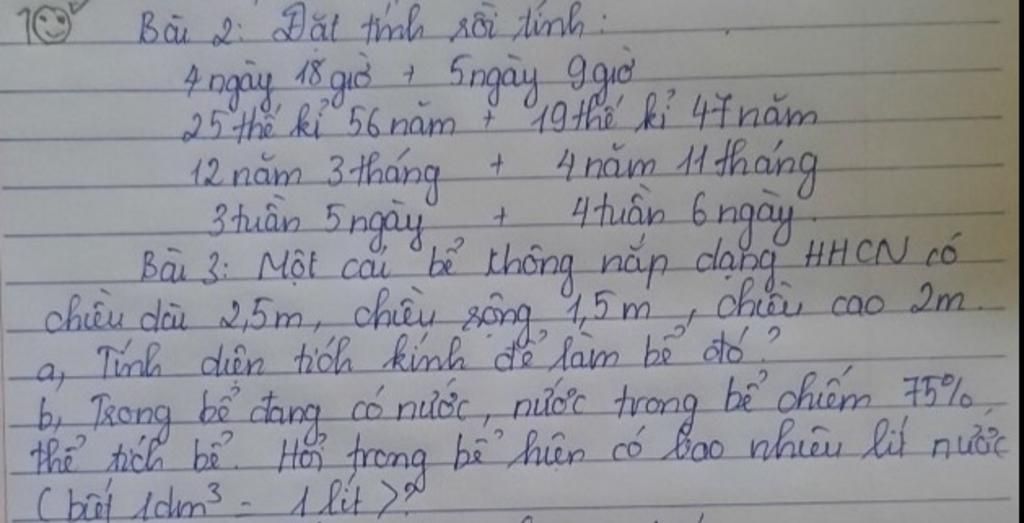 Bài 2: Đặt tính rồi tính:
4 ngày 18 giờ + 5 ngày 9 giờ
25 thế kỉ 56 năm + 19 thế kỉ 47 năm
12 năm 3 tháng + 4 năm 11 tháng
3 tuần 5 ngày + 4 tuần 6 ngày.
Bài 3: Một cái bể không nắp dạng HHCN có
chiều dài 2,5m, chiều rộng 1,5m, chiều cao 2m.
a, Tính diện tích kính để làm bể đó?
b, Trong bể đang có nước, nước trong bể chiếm 75%
thể tích bể. Hỏi trong bể hiện có bao nhiêu lít nước
(biết 1dm³ = 1 lít)?